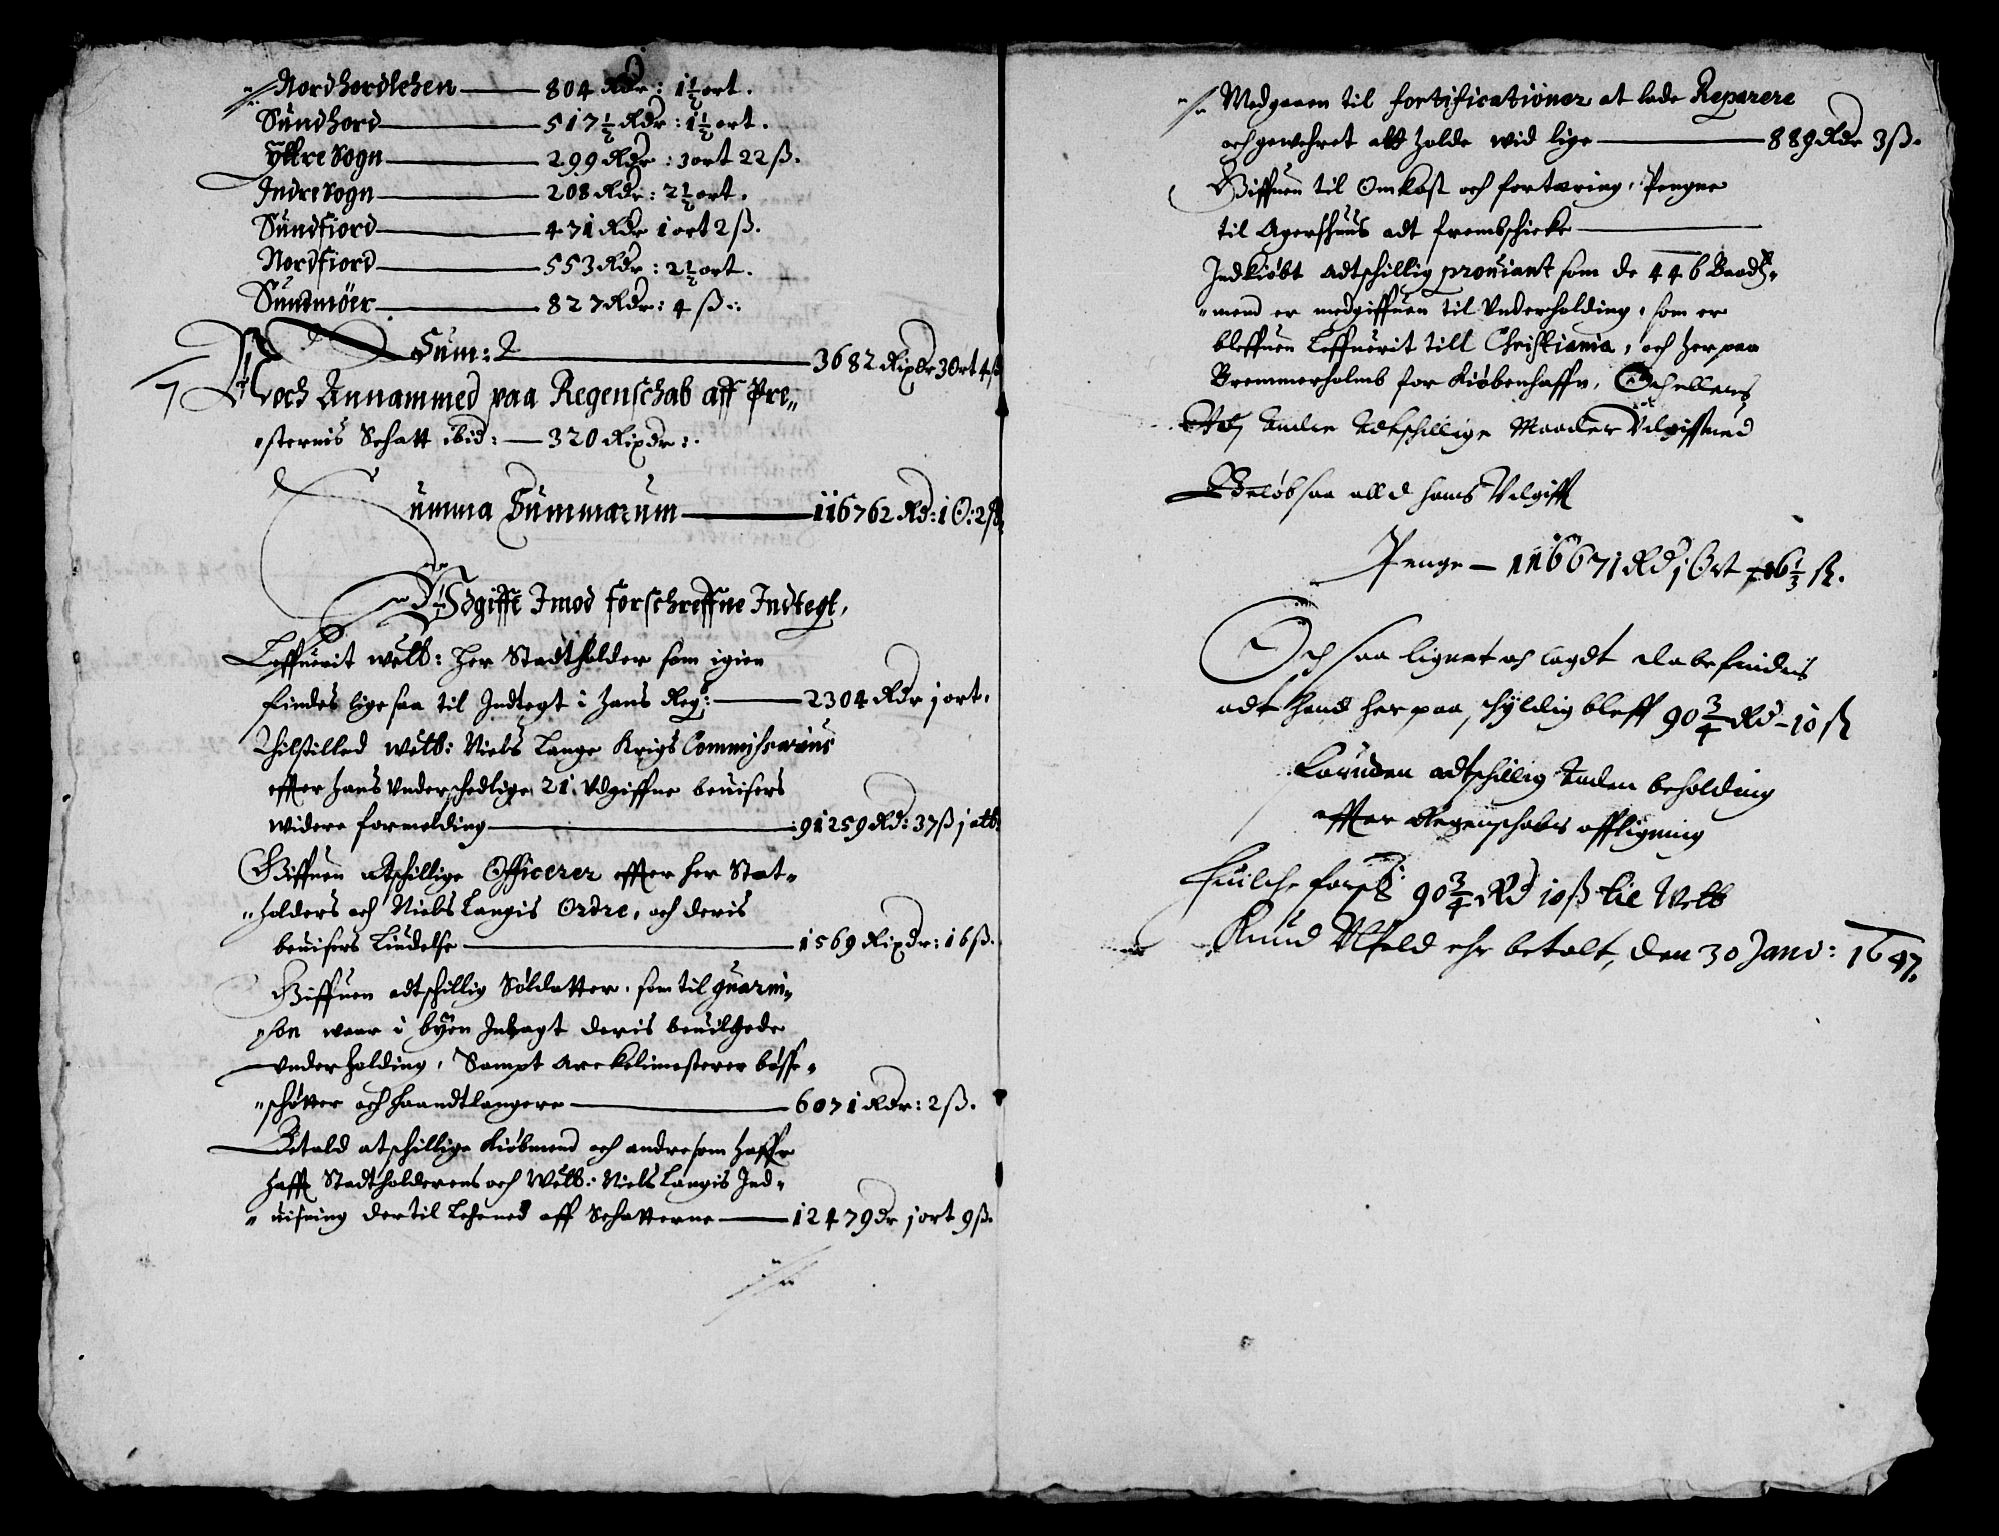 Nordhordlehen — 804 Rdr: 1½ ort.
Sundhord — 517½ Rdr: 1½ ort.
Ÿttre Sogn — 299 Rdr: 3 ort 22 ß.
Indre Sogn — 208 Rdr: 2½ ort.
Sundfiord — 471 Rdr 1 ort 2 ß.
Nordfiord — 553 Rdr: 2½ ort.
Sundmöer — 827 Rdr: 4 ß.
Sum: — 3682 Rixdr 3 Ort 4 ß
Noch Annammed paa Regenschab aff Pre„
„sternis Schatt ibid: — 320 Rixdr:
Summa Summarum — 116762 Rd: 1 O: 2 ß
Udgifft Imod forschreffne Indtegt,
Leffuerit welb: Her Stadtholder som igien
findes lige saa til Indtegt i hans Reg: — 2304 Rdr j ort.
Thilstilled welb: Niels Lange Krigs Commissarius
effter hans Underschedlige 21 Udgiffne beuisers
widere formelding — 91259 Rd: 37 ß j alb:
Giffuen atschillige Officerer effter her Stat„
„holders och Niels Langis Ordre, och deris
beuisers Liudelse — 1569 Rixdr: 16 ß.
Giffuen adtschillig Söldatter, som til guarni„
„son waar i byen Inlagt deris beuilgede
underholding, Sampt Arckelimesterer bösse„
„schötter och Haandtlangere — 6071 Rdr: 2 ß.
Betald atschillige Kiöbmend och andre som haffr
hafft Stadtholderens och Welb: Niels Langis Ind„
„uisning der til Lehened aff Schatterne — 12479 dr j ort 9 ß.
Medgaaen til fortificationer at lade Reparere
och gewehret att holde wid lige — 889 Rdr 3 ß.
Giffuen til Omkost och fortæring, Pengne
til Agershuus adt frembschicke —
Indkiöbt adtschillig prouiant som de 446 Baads„
„mend er medgiffuen til Underholding, som er
bleffuen Leffuerit till Christiania, och her paa
Bremmerholmb for Kiöbenhaffn, Och ellers
Udj Anden Adtschillige Maader Udgiffued
Belöb saa all d hans Udgifft
Penge — 116671 Rd j Ort 16⅓ ß.
Och saa lignet och lagdt da befindis
adt hand her paa schyldig bleff 90¾ Rd - 10 ß
Foruden adtschillig Anden beholding
effter Regenschabs affligning
Huilche forsch: 90¾ Rd 10 ß tie Welb
Knud Ulfeld ehr betalt, den 30 Janv: 1647.